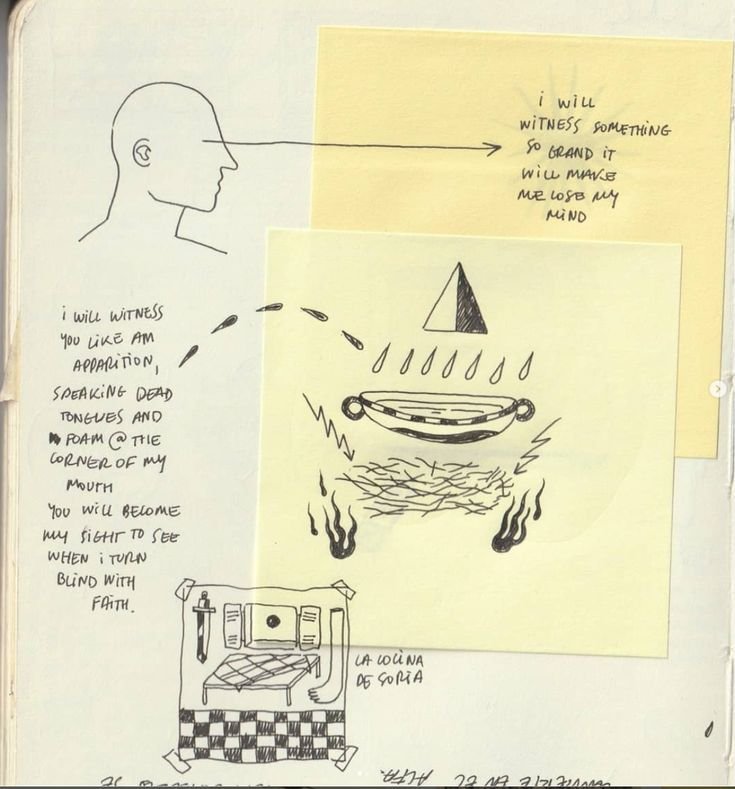 i WILL
WITNESS SOMETHING
SO GRAND IT
WILL MAKE
ME LOSE MY
MIND
i WILL WITNESS
YOU LIKE AN
APPARITION,
SPEAKING DEAD
TONGUES AND
FOAM @ THE
CORNER OF MY
MOUTH
YOU WILL BECOME
MY SIGHT TO SEE
WHEN i TURN
BLIND WITH
FAITH.
LA COCINA
DE SORIA
EN EL ALFA.